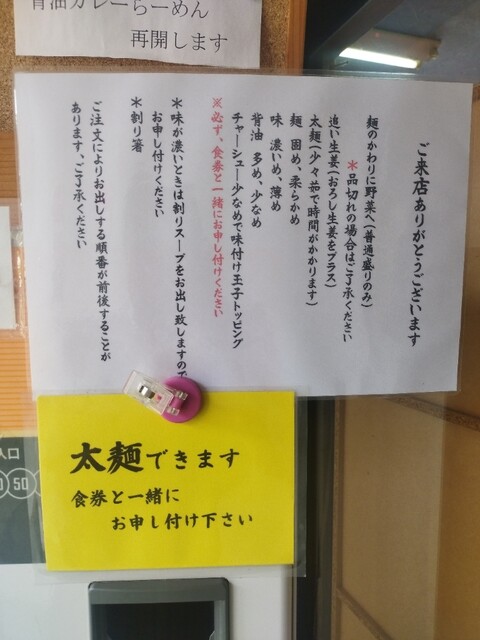 背油カレーらーめん
再開します
ご来店ありがとうございます
麺のかわりに野菜へ(普通盛りのみ)
＊品切れの場合はご了承ください
追い生姜(おろし生姜をプラス)
太麺(少々茹で時間がかかります)
麺 固め、柔らかめ
味 濃いめ、薄め
背油 多め、少なめ
チャーシュー少なめで味付け玉子トッピング
※必ず、食券と一緒にお申し付けください
＊味が濃いときは割りスープをお出し致しますので
お申し付けください
＊割り箸
ご注文によりお出しする順番が前後することが
あります、ご了承ください
太麺できます
食券と一緒に
お申し付け下さい
入口
50